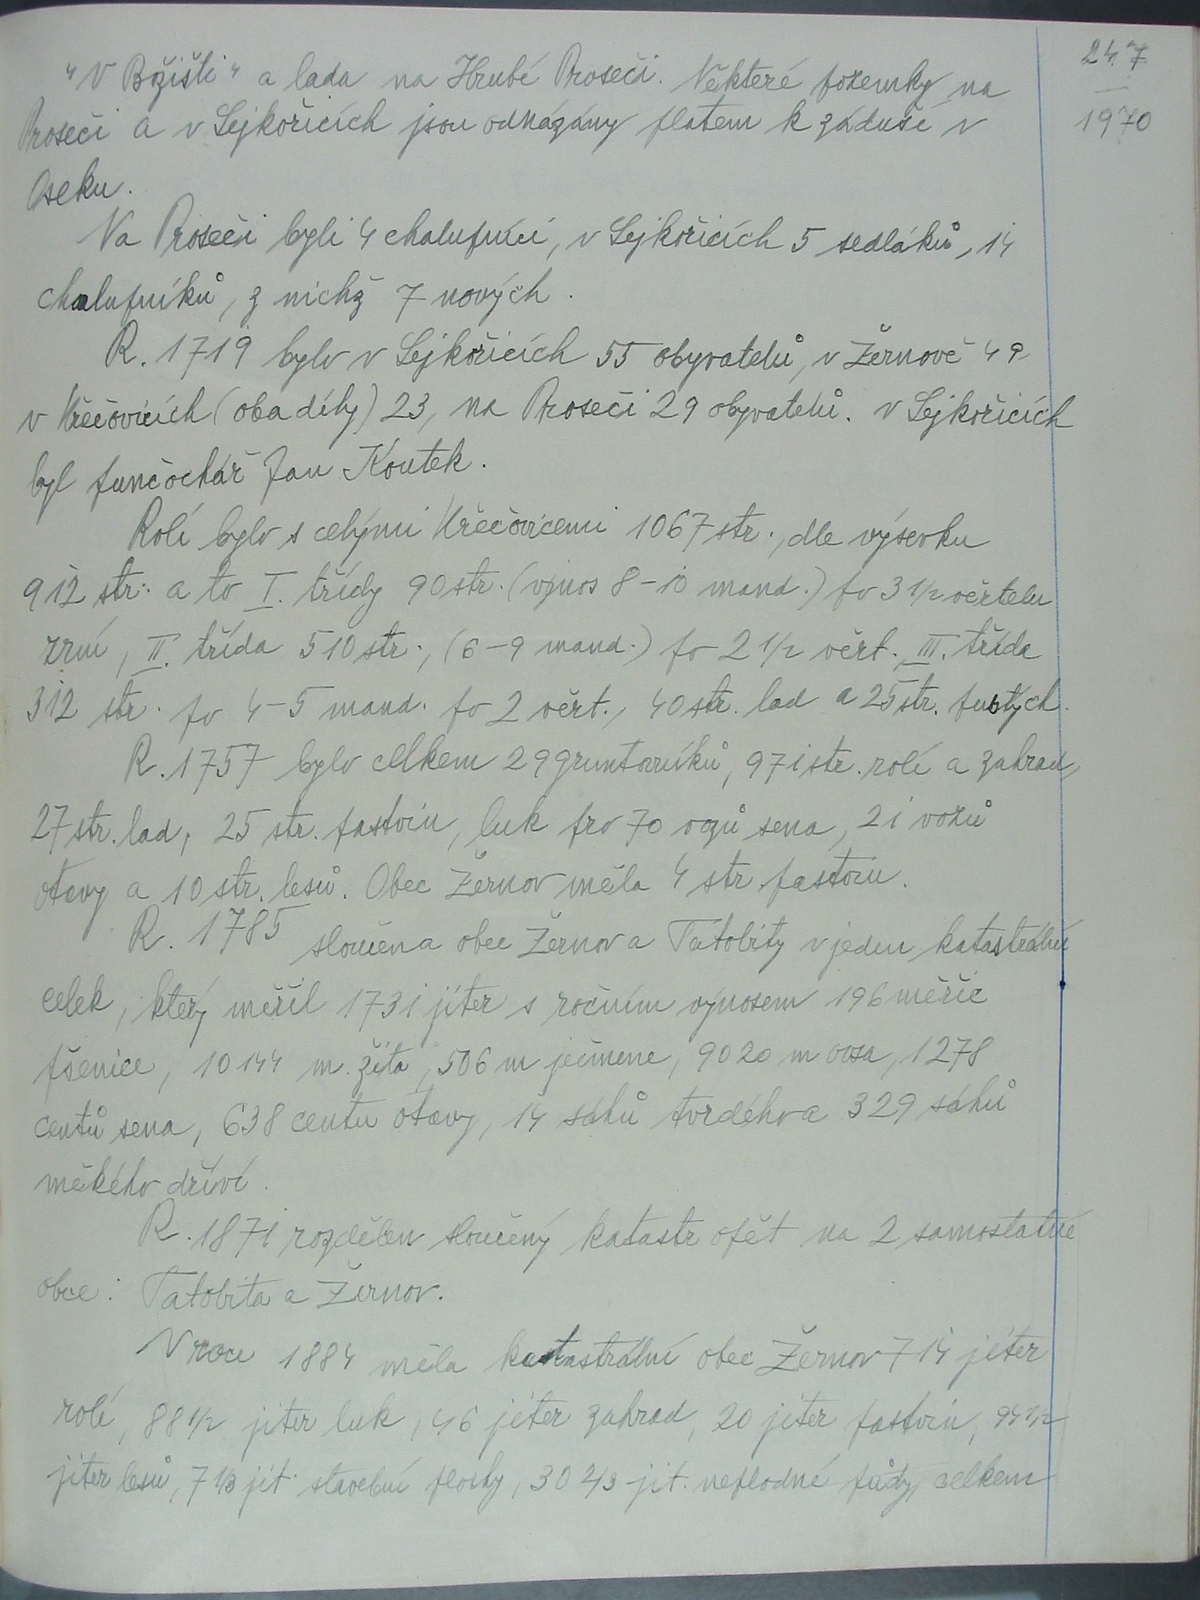 247
1970
"V Božišti" a lada na Hrubé Proseči. Některé pozemky na
Proseči a v Lejkořicích jsou odkázány platem k záduší v
Oseku.
Na Proseči byli 4 chalupníci, v Lejkořicích 5 sedláků, 14
chalupníků, z nichž 7 nových.
R. 1719 bylo v Lejkořicích 55 obyvatelů, v Žernově 49
v Křečovicích (oba díly) 23, na Proseči 29 obyvatelů. v Lejkořicích
byl punčochář Jan Koutek.
Rolí bylo s celými Křečovicemi 1067 str., dle výsevku
912 str. a to I. třídy 90 str. (výnos 8-10 mand.) po 3 1/2 věrtelu
zrní, II. třída 510 str., (6-9 mand.) po 2 1/2 věrt., III. třída
312 str. po 4-5 mand. po 2 věrt., 40 str. lad a 25 str. pustých.
R. 1757 bylo celkem 29 gruntovníků, 971 str. rolí a zahrad,
27 str. lad, 25 str. pastvin, luk pro 70 vozů sena, 21 vozů
otavy a 10 str. lesů. Obec Žernov měla 4 str. pastvin.
R. 1785 sloučena obec Žernov a Tatobity v jeden katastrální
celek, který měřil 1731 jiter s ročním výnosem 196 měřic
pšenice, 10144 m. žita, 506 m ječmene, 9020 m ovsa, 1278
centů sena, 638 centu otavy, 14 sáhů tvrdého a 329 sáhů
měkého dříví.
R. 1871 rozdělen sloučený katastr opět na 2 samostatné
obce: Tatobita a Žernov.
V roce 1884 měla katastrální obec Žernov 714 jiter
rolí, 88 1/2 jiter luk, 46 jiter zahrad, 20 jiter pastvin, 94 1/2
jiter lesů, 7 1/3 jit. stavební plochy, 30 2/3 jit. neplodné půdy, celkem